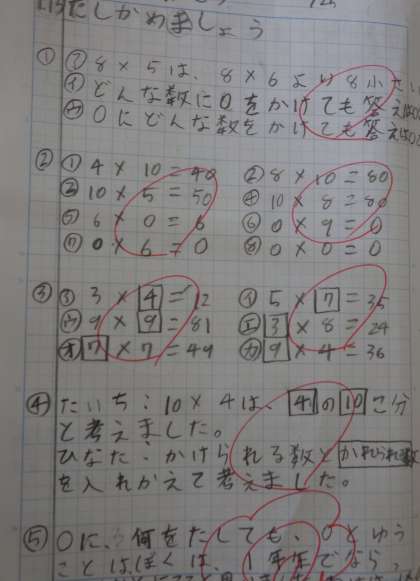 たしかめましょう
① ㋐ 8 × 5 は、 8 × 6 より 8 小
㋑ どんな数に 0 をかけても 答えは
㋒ 0 にどんな数をかけても 答えは
② ① 4 × 10 = 40 ② 8 × 10 = 80
③ 10 × 5 = 50 ④ 10 × 8 = 80
⑤ 6 × 0 = 6 ⑥ 0 × 9 = 0
⑦ 0 × 6 = 0 ⑧ 0 × 0 = 0
③ 3 × 4 = 12 ㋑ 5 × 7 = 35
㋒ 9 × 9 = 81 ㋓ 3 × 8 = 24
㋔ 7 × 7 = 49 ㋕ 9 × 4 = 36
④ たいち：10 × 4 は、 4 の 10 こ分
と考えました。
ひなた：かけられる数と
を入れかえて考えました。
⑤ 0 に、何をたしても、 0 とゆう
ことは、ぼくは、 1 年生でなら